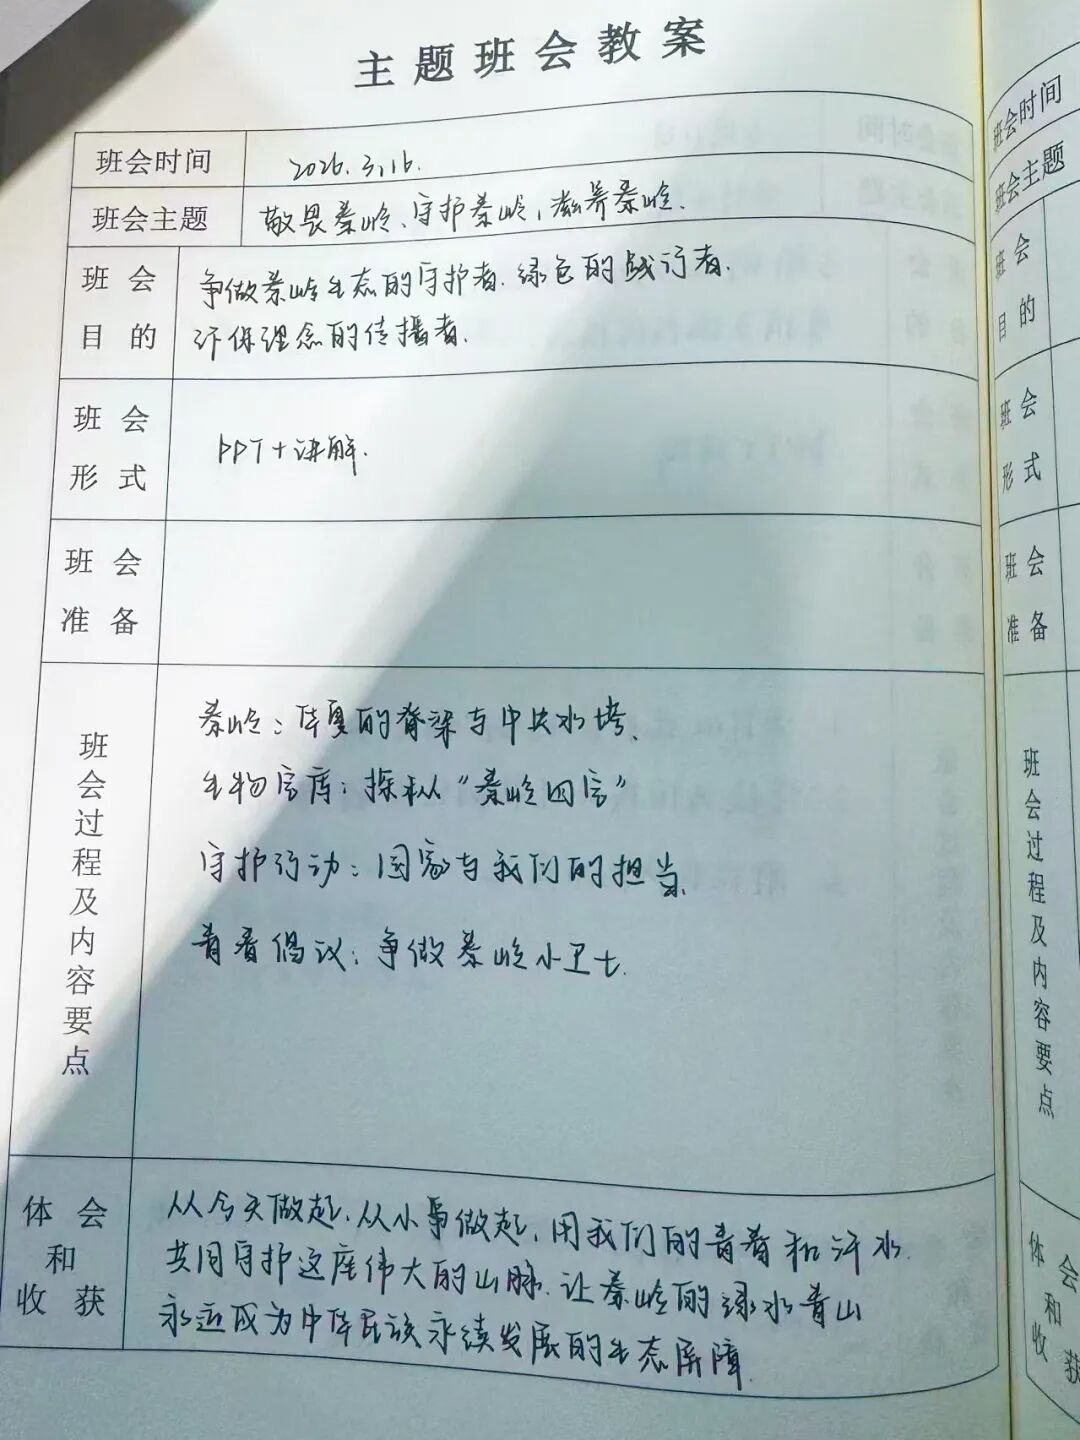 主题班会教案
班会时间 2026.3.16.
班会主题 敬畏秦岭、守护秦岭,滋养秦岭.
班会目的 争做秦岭生态的守护者.绿色的践行者.
环保理念的传播者.
班会形式 PPT+讲解.
班会准备
班会过程及内容要点
秦岭:华夏的脊梁与中央水塔.
生物宝库:探秘“秦岭四宝”
守护行动:国家与我们的担当.
青春倡议:争做秦岭小卫士.
体会和收获
从今天做起.从小事做起.用我们的青春和汗水.
共同守护这座伟大的山脉.让秦岭的绿水青山
永远成为中华民族永续发展的生态屏障.
班会时间
班会主题
班会目的
班会形式
班会准备
班会过程及内容要点
体会和收获